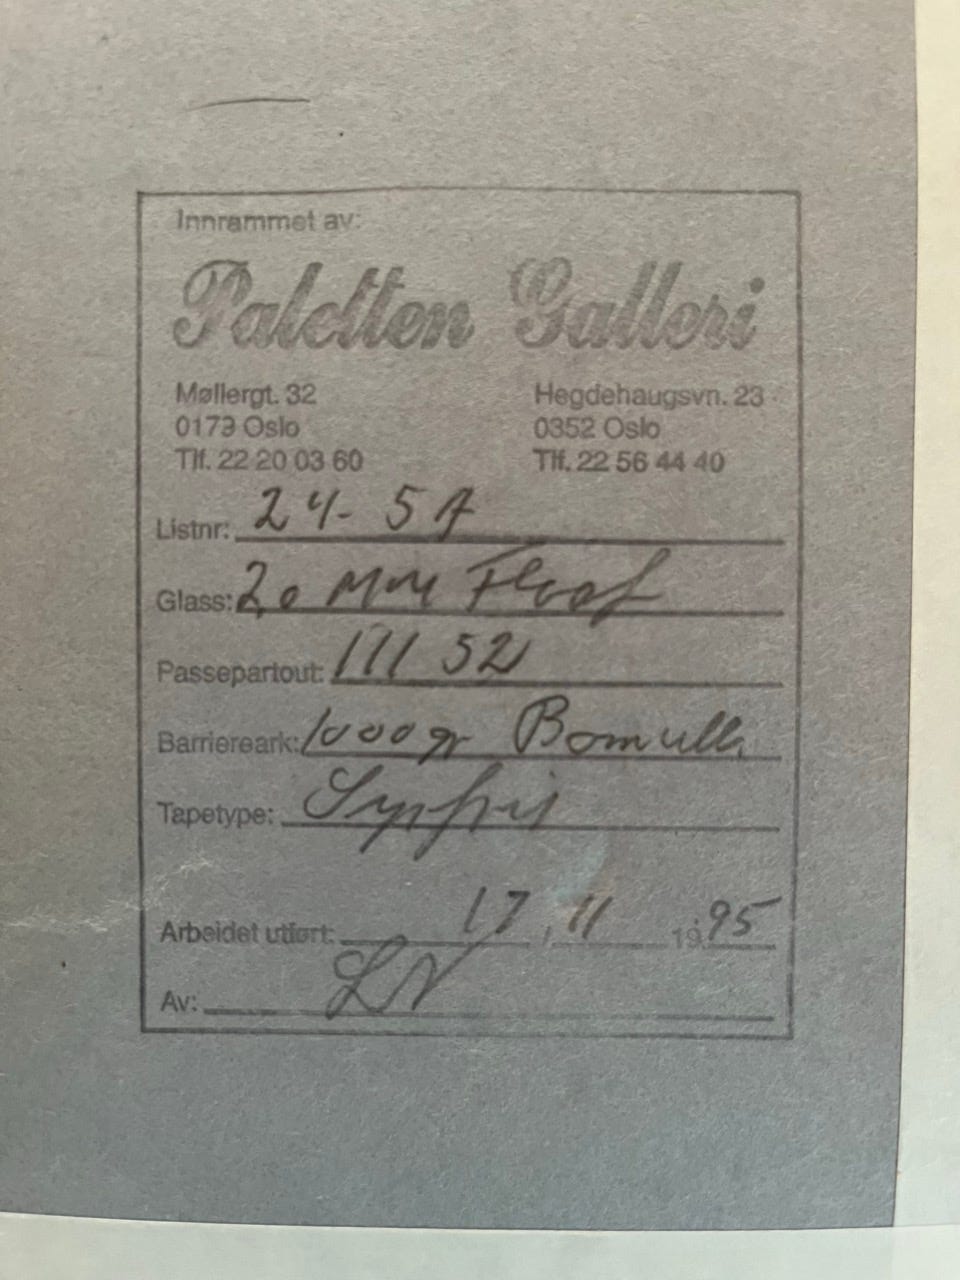 Innrammet av:
Paletten Galleri
Møllergt. 32 Hegdehaugsvn. 23
0173 Oslo 0352 Oslo
Tlf. 22 20 03 60 Tlf. 22 56 44 40
Listnr: 24-5A
Glass: 2,0 MM
Passepartout: 11152
Barriereark: 1000 gr Bomull
Tapetype:
Arbeidet utført: 17, 11 19 95
Av: LN